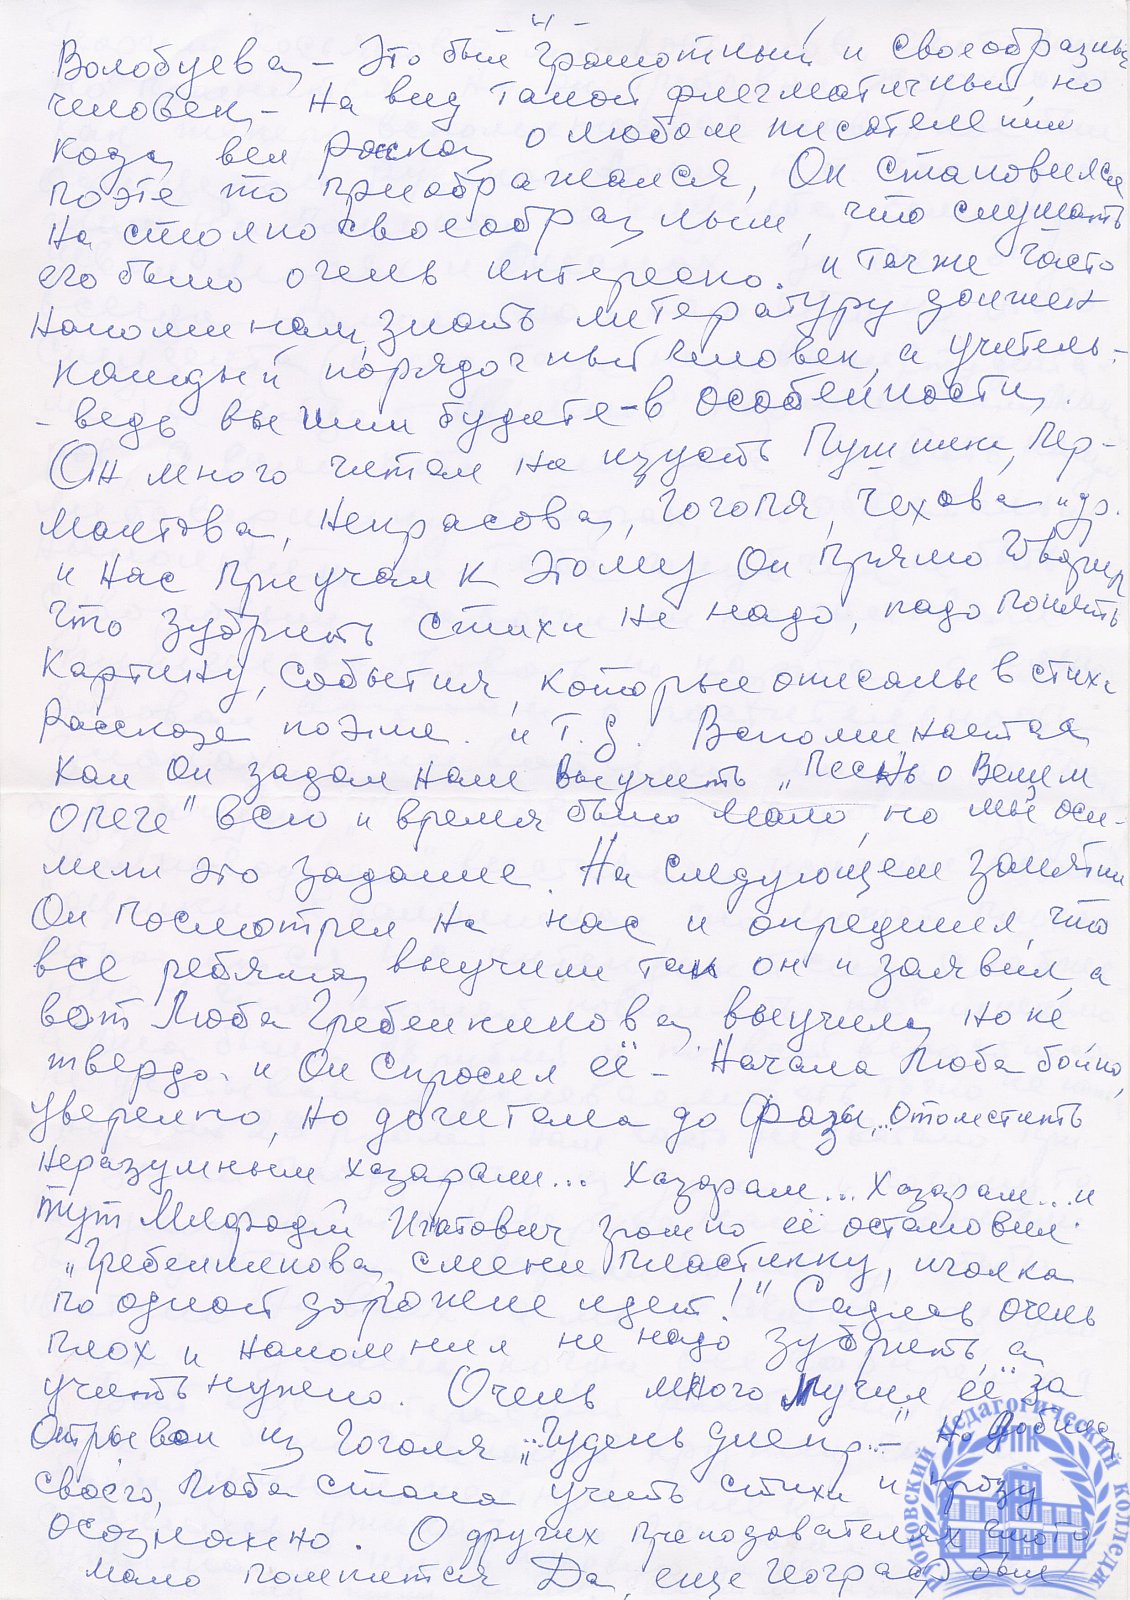 - 4 -
Волобуева, - Это был грамотный и своеобразный
человек, - на вид такой флегматичный, но
когда вел рассказ о любом писателе или
поэте то приображался, Он становился
на столько своеобразным, что слушать
его было очень интересно. и также часто
напоминал, знать литературу должен
каждый порядочный человек, а учитель -
- ведь вы ими будете - в особенности.
Он много читал на изусть Пушкина, Лер-
монтова, Некрасова, Гоголя, Чехова и др.
и нас приучал к этому Он прямо говорил
что зубрить стихи не надо, надо понять
картину, события, которые описаны в стихе
рассказе поэме. и т.д. Вспоминается
как Он задал нам выучить „Песнь о Вещем
Олеге" всю и время было мало, но мы оси-
лили это задание. На следующем занятии
Он посмотрел на нас и определил, что
все ребята, выучили так он и заявил, а
вот Люба Гребенкинова, выучила, но не
твердо. и Он спросил её - Начала Люба бойко,
уверенно, но дочитала до фразы, „отомстить
неразумным хазарам... хазарам... хазарам... и
тут Мефодий Игнатович громко её остановил.
„Гребенкинова, смени пластинку, иголка
по одной дорожке идет!" Садись очень
плохо и напомнил не надо зубрить, а
учить нужно. Очень много мучил её за
отрывок из Гоголя „Чуден Днепр..." - Но добился
своего, Люба стала учить стихи и прозу
осознанно. О других преподавателях что-то
мало помнится Да, еще географ был
педагогический колледж